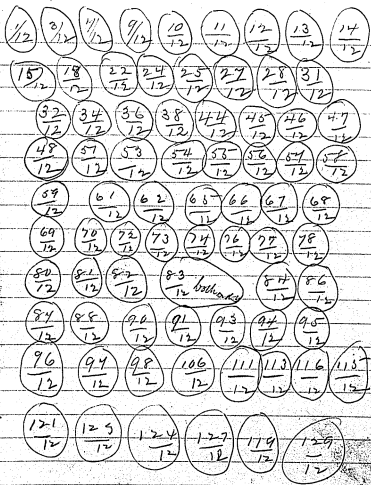 1/12 3/12 4/12 9/12 10/12 11/12 12/12 13/12 14/12
15/12 18/12 22/12 24/12 25/12 27/12 28/12 31/12
32/12 34/12 36/12 38/12 44/12 45/12 46/12 47/12
48/12 51/12 53/12 54/12 55/12 56/12 57/12 58/12
59/12 61/12 62/12 65/12 66/12 67/12 68/12
69/12 70/12 72/12 73/12 74/12 76/12 77/12 78/12
80/12 81/12 82/12 83/12 84/12 86/12
87/12 88/12 90/12 91/12 93/12 94/12 95/12
96/12 97/12 98/12 106/12 111/12 113/12 116/12 115/12
121/12 123/12 124/12 127/12 119/12 129/12